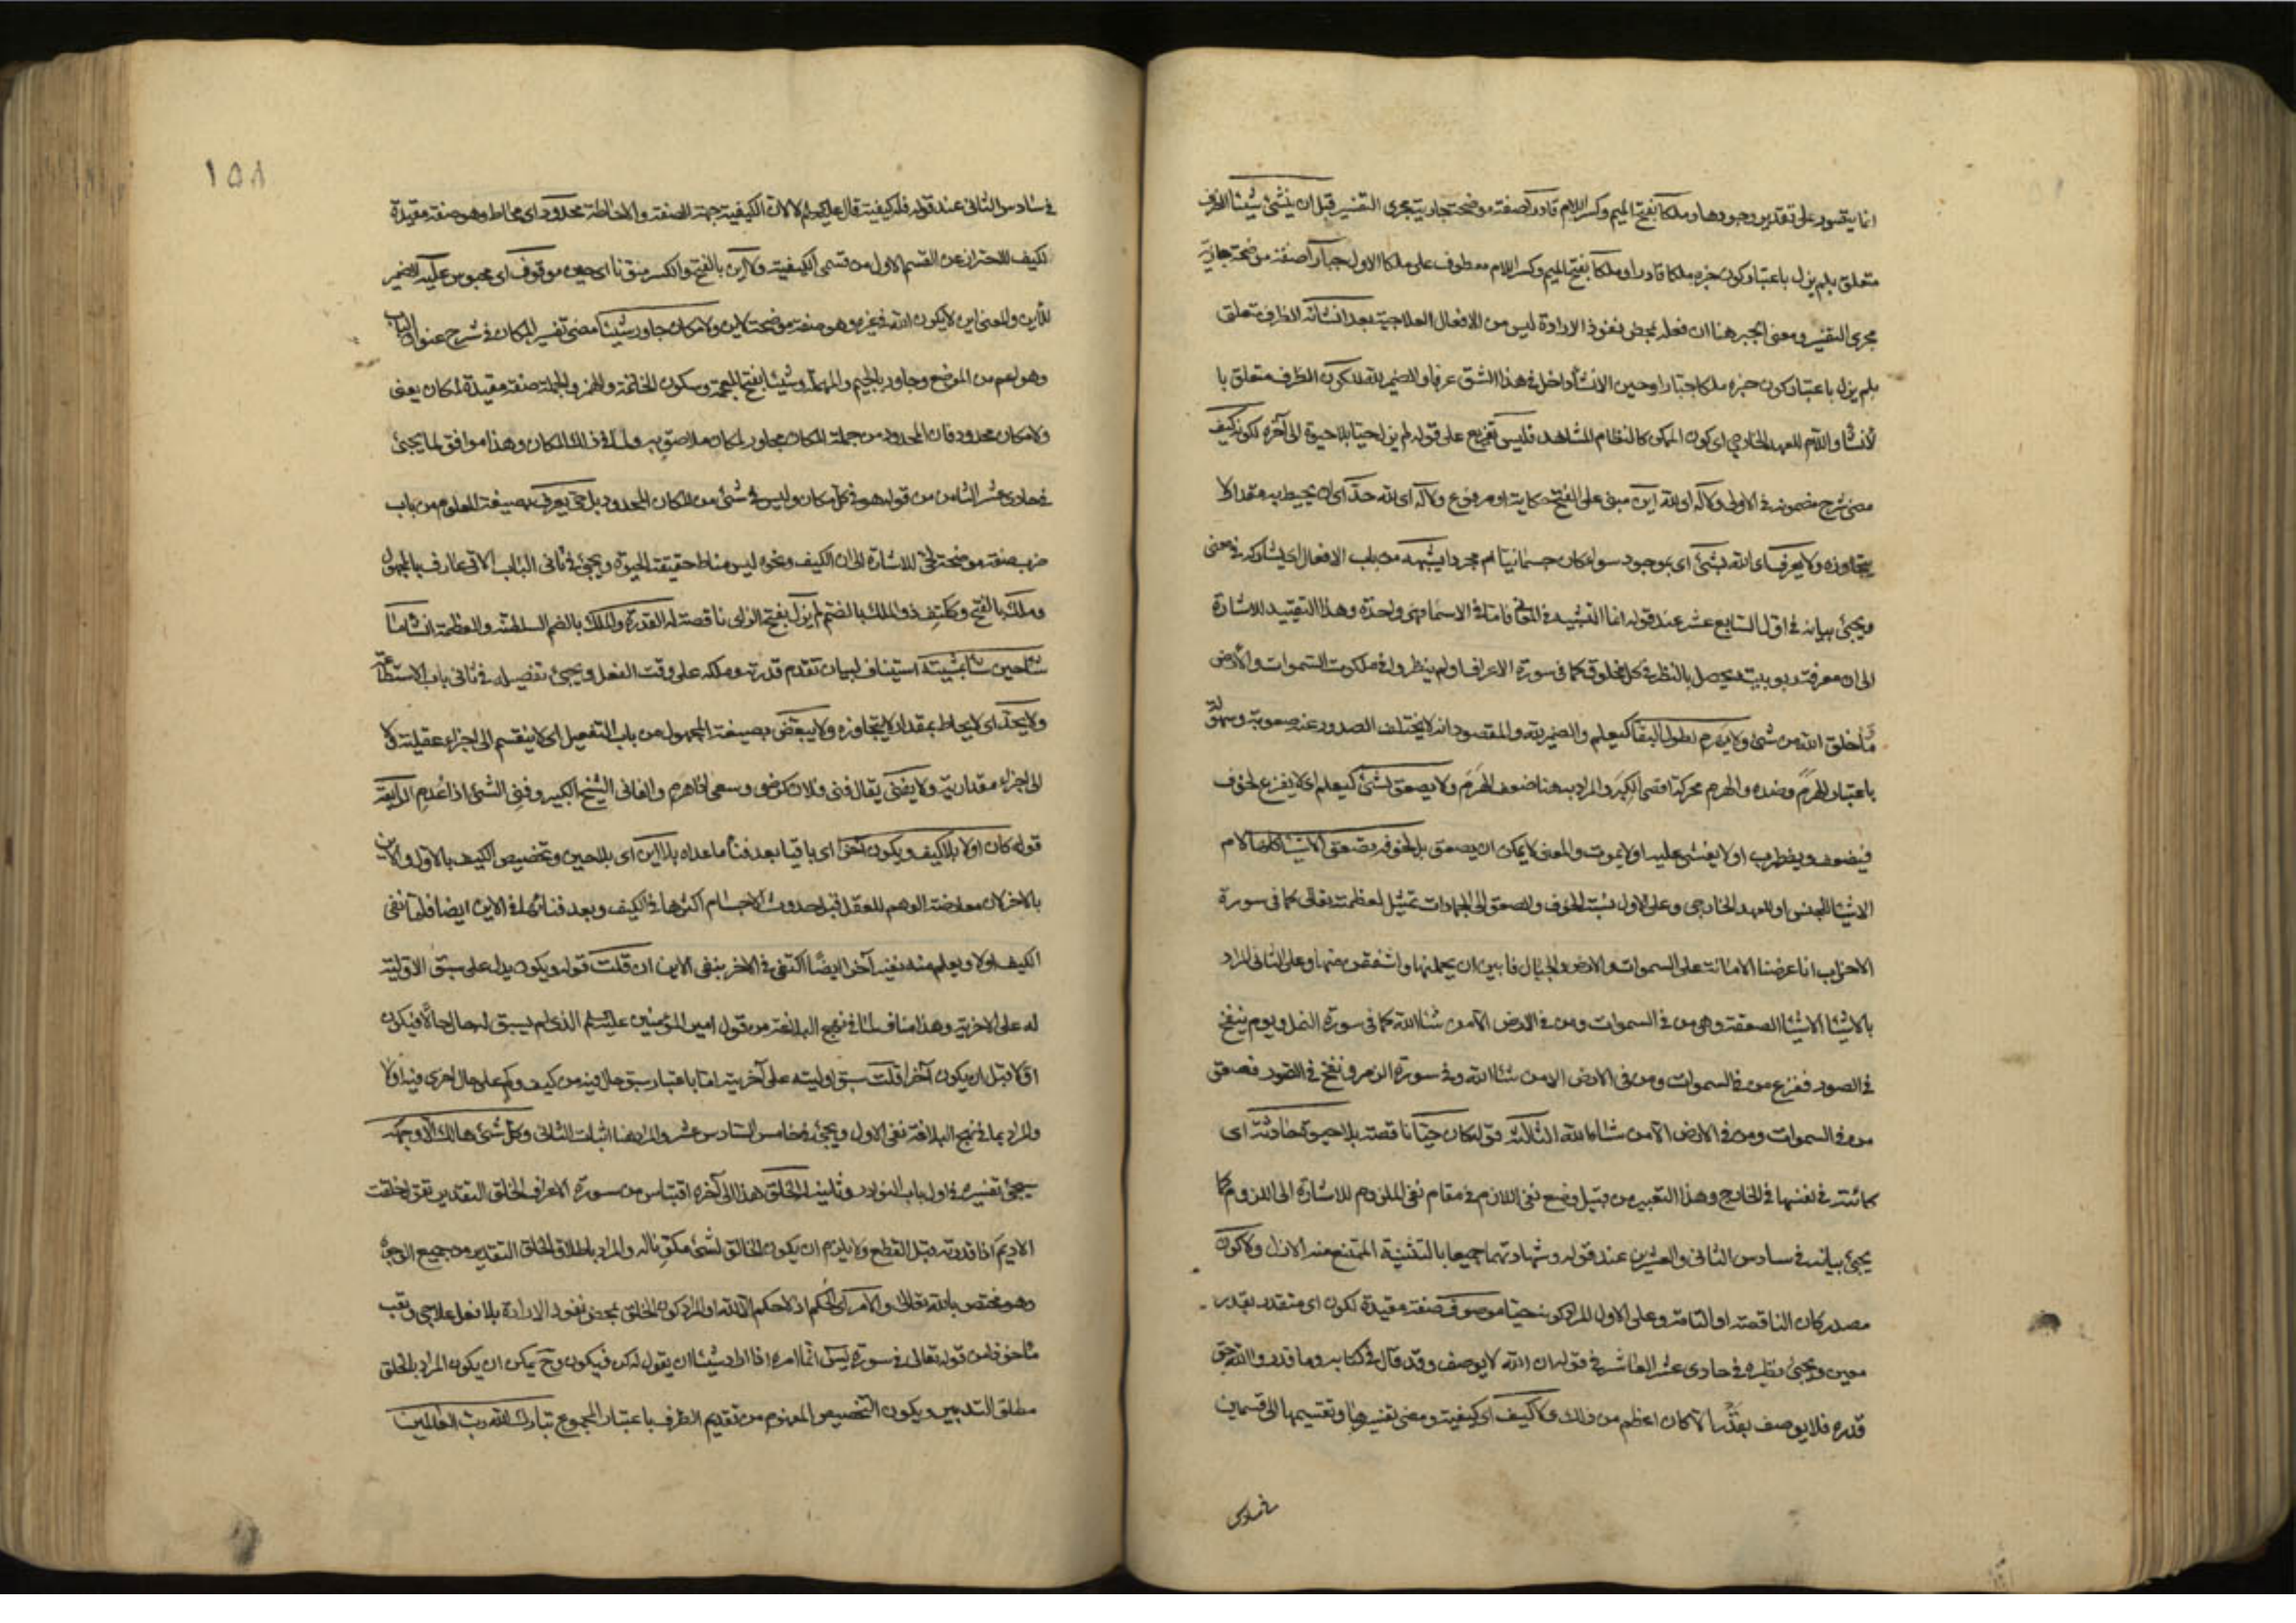 انما يتصور على تقدير وجودها وملكا بفتح الميم وكسر اللام قادرا صفة موضحة جارية مجرى التفسير قبل ان ينشئ شيئا الظرف
متعلق بلم يزل باعتبار كون خبره ملكا قادرا وملكا بفتح الميم وكسر اللام معطوف على ملكا الاول جبارا صفة موضحة جارية
مجرى التفسير ومعنى الجبر هنا ان فعله بمحض نفوذ الارادة ليس من الافعال العلاجية بعد انشائه الظرف متعلق
بلم يزل باعتبار كون خبره ملكا جبارا وحين الانشاء داخل في هذا الشق عرفا والضمير لله للكون الظرف متعلق با
لانشاء واللام للعهد الخارجي اى كون الممكن كالنظام المشاهد فليس تفريع على قوله لم يزل حيا بلا حيوة الى آخره لكونه كيف
مضى شرح مضمونه في الاول ولا له اى لله اين مبنى على الفتح حكاية او مرفوع ولا له اى لله حد اى ان يحيط به مقدار لا
يتجاوزه ولا يعرف اى الله بشئ اى بموجود سواه كان جسمانيا ام مجردا يشبهه من باب الافعال اى يشاركه في معنى
ويجئ بيانه في اول السابع عشر عند قوله انما التشبيه في المعانى فاما في الاسماء فهى واحدة وهذا التقييد للاشارة
الى ان معرفته بربوبيته يحصل بالنظر في كل مخلوق كما في سورة الاعراف اولم ينظروا في ملكوت السموات والارض
وما خلق الله من شئ ولا يهرم لطول البقاء كيعلم والضمير لله والمقصود انه لا يختلف الصدور عنه صعوبة وسهولة
باعتبار الهرم وضده والهرم محركة اقصى الكبر والمراد به هنا ضعف الهرم ولا يصعق لشئ كيعلم اى لا يفزع لخوف
فيضعف ويضطرب او لا يغشى عليه او لا يموت والمعنى لا يمكن ان يصعق بل لخوفه تصعق الاشياء كلها اللام
الاشياء للجنس او للعهد الخارجي وعلى الاول نسبة الخوف والصعق الى الجمادات تمثيل لعظمته تعالى كما في سورة
الاحزاب انا عرضنا الامانة على السموات والارض والجبال فابين ان يحملنها واشفقن منها وعلى الثانى المراد
بالاشياء الاشياء الصعقة وهى من في السموات ومن في الارض الا من شاء الله كما في سورة النمل ويوم ينفخ
في الصور ففزع من في السموات ومن في الارض الا من شاء الله وفي سورة الزمر ونفخ في الصور فصعق
من في السموات ومن في الارض الا من شاء الله الثالث قوله كان حيا ناقصة بلا حيوة حادثة اى
كائنة في نفسها في الخارج وهذا التعبير من قبيل وضع نفى اللازم في مقام نفى الملزوم للاشارة الى اللزوم كما
يجئ بيانه في سادس الثانى والعشرين عند قوله وشهادتهما جميعا بالتثنية الممتنع منه الازل ولا كون
مصدر كان الناقصة او التامة وعلى الاول المراد كونه حيا موصوف صفة مقيدة لكون اى متقدر بقدر
معين ويجئ نظيره في حادى عشر العاشر في قوله ان الله لا يوصف وقد قال في كتابه وما قدروا الله حق
قدره فلا يوصف بقدر الا كان اعظم من ذلك ولا كيف اى كيفية ومضى تفسيرها وتقسيمها الى قسمين
في سادس
١٥٨
في سادس الثانى عند قوله فله كيفية قال عليه السلام لا لان الكيفية جهة الصفة والاحاطة محدود اى محاط وهو صفة مقيدة
لكيف للاحتراز عن القسم الاول من قسمى الكيفية ولا اين بالفتح والكسر منونا اى حين موقوف اى محبوس عليه الضمير
للاين والمعنى اين لا يكون الله في غيره وهو صفة موضحة لاين ولا مكان جاور شيئا مضى تفسير المكان في شرح عنوان الباب
وهو اعم من الموضع وجاور بالجيم والمهملة وشيئا بفتح المعجمة وسكون الخاتمة والهمز والجملة صفة مقيدة لمكان يعنى
ولا مكان محدود فان المحدود من جملة المكان مجاور لمكان ملاصق به وليس في ذلك المكان وهذا موافق لما يجئ
في حادى عشر الثامن من قوله هو في كل مكان وليس في شئ من المكان المحدود بل حى يعرف بصيغة المعلوم من باب
ضرب صفة موضحة لحى للاشارة الى ان الكيف ونحوه ليس مناط حقيقة الحيوة ويجئ في ثانى الباب الاتى عارف بالمجهول
وملك بالفتح وككتف ذو الملك بالضم لم يزل بفتح الزاى ناقصة له القدرة والملك بالضم السلطنة والعظمة انشأ ما
شاء حين شاء بمشيته استيناف لبيان تقدم قدرته وملكه على وقت الفعل ويجئ تفصيله في ثانى باب الاستطاعة
ولا يحد اى لا يحاط بمقدار لا يتجاوزه ولا يبعض بصيغة المجهول من باب التفعيل اى لا ينقسم الى اجزاء عقلية ولا
الى اجزاء مقدارية ولا يفنى يقال فنى فلان كرضى وسعى اذا هرم والفانى الشيخ الكبير وفنى الشئ اذا عدم الرابعة
قوله كان اولا بلا كيف ويكون آخرا اى باقيا بعد فناء ما عداه بلا اين اى بلا حين وتخصيص الكيف بالاول والاين
بالاخر لان معارضة الوهم للعقل قبل حدوث الاجسام اكثرها في الكيف وبعد فنائها في الاين ايضا فلما نفى
الكيف اولا ويعلم منه نفيه آخرا ايضا اكتفى في الاخر بنفى الاين ان قلت قوله ويكون يدل على سبق الاولية
له على الاخرية وهذا مناف لما في نهج البلاغة من قول امير المؤمنين عليه السلم الذى لم يسبق له حال حالا فيكون
اولا قبل ان يكون آخرا قلت سبق اوليته على آخريته اما باعتبار سبق حال فيه من كيف وكم على حال اخرى فيه اولا
والمراد بما في نهج البلاغة نفى الاول ويجئ في خامس السادس عشر والمراد هنا اثبات الثانى وكل شئ هالك الا وجهه
سيجئ تفسيره في اول باب النوادر وثانيه له الخلق هذا الى آخره اقتباس من سورة الاعراف الخلق التقدير تقول خلقت
الاديم اذا قدرته قبل القطع ولا يلزم ان يكون الخالق لشئ مكونا له والمراد باطلاق الخلق التقدير من جميع الوجوه
وهو مختص بالله تعالى والامر اى الحكم اذ لا حكم الا لله او المراد كون الخلق بمحض نفوذ الارادة بلا فعل علاجى وتعب
مأخوذا من قوله تعالى في سورة يس انما امره اذا اراد شيئا ان يقول له كن فيكون وح يمكن ان يكون المراد بالخلق
مطلق التدبير ويكون التخصيص المفهوم من تقديم الظرف باعتبار المجموع تبارك الله رب العالمين